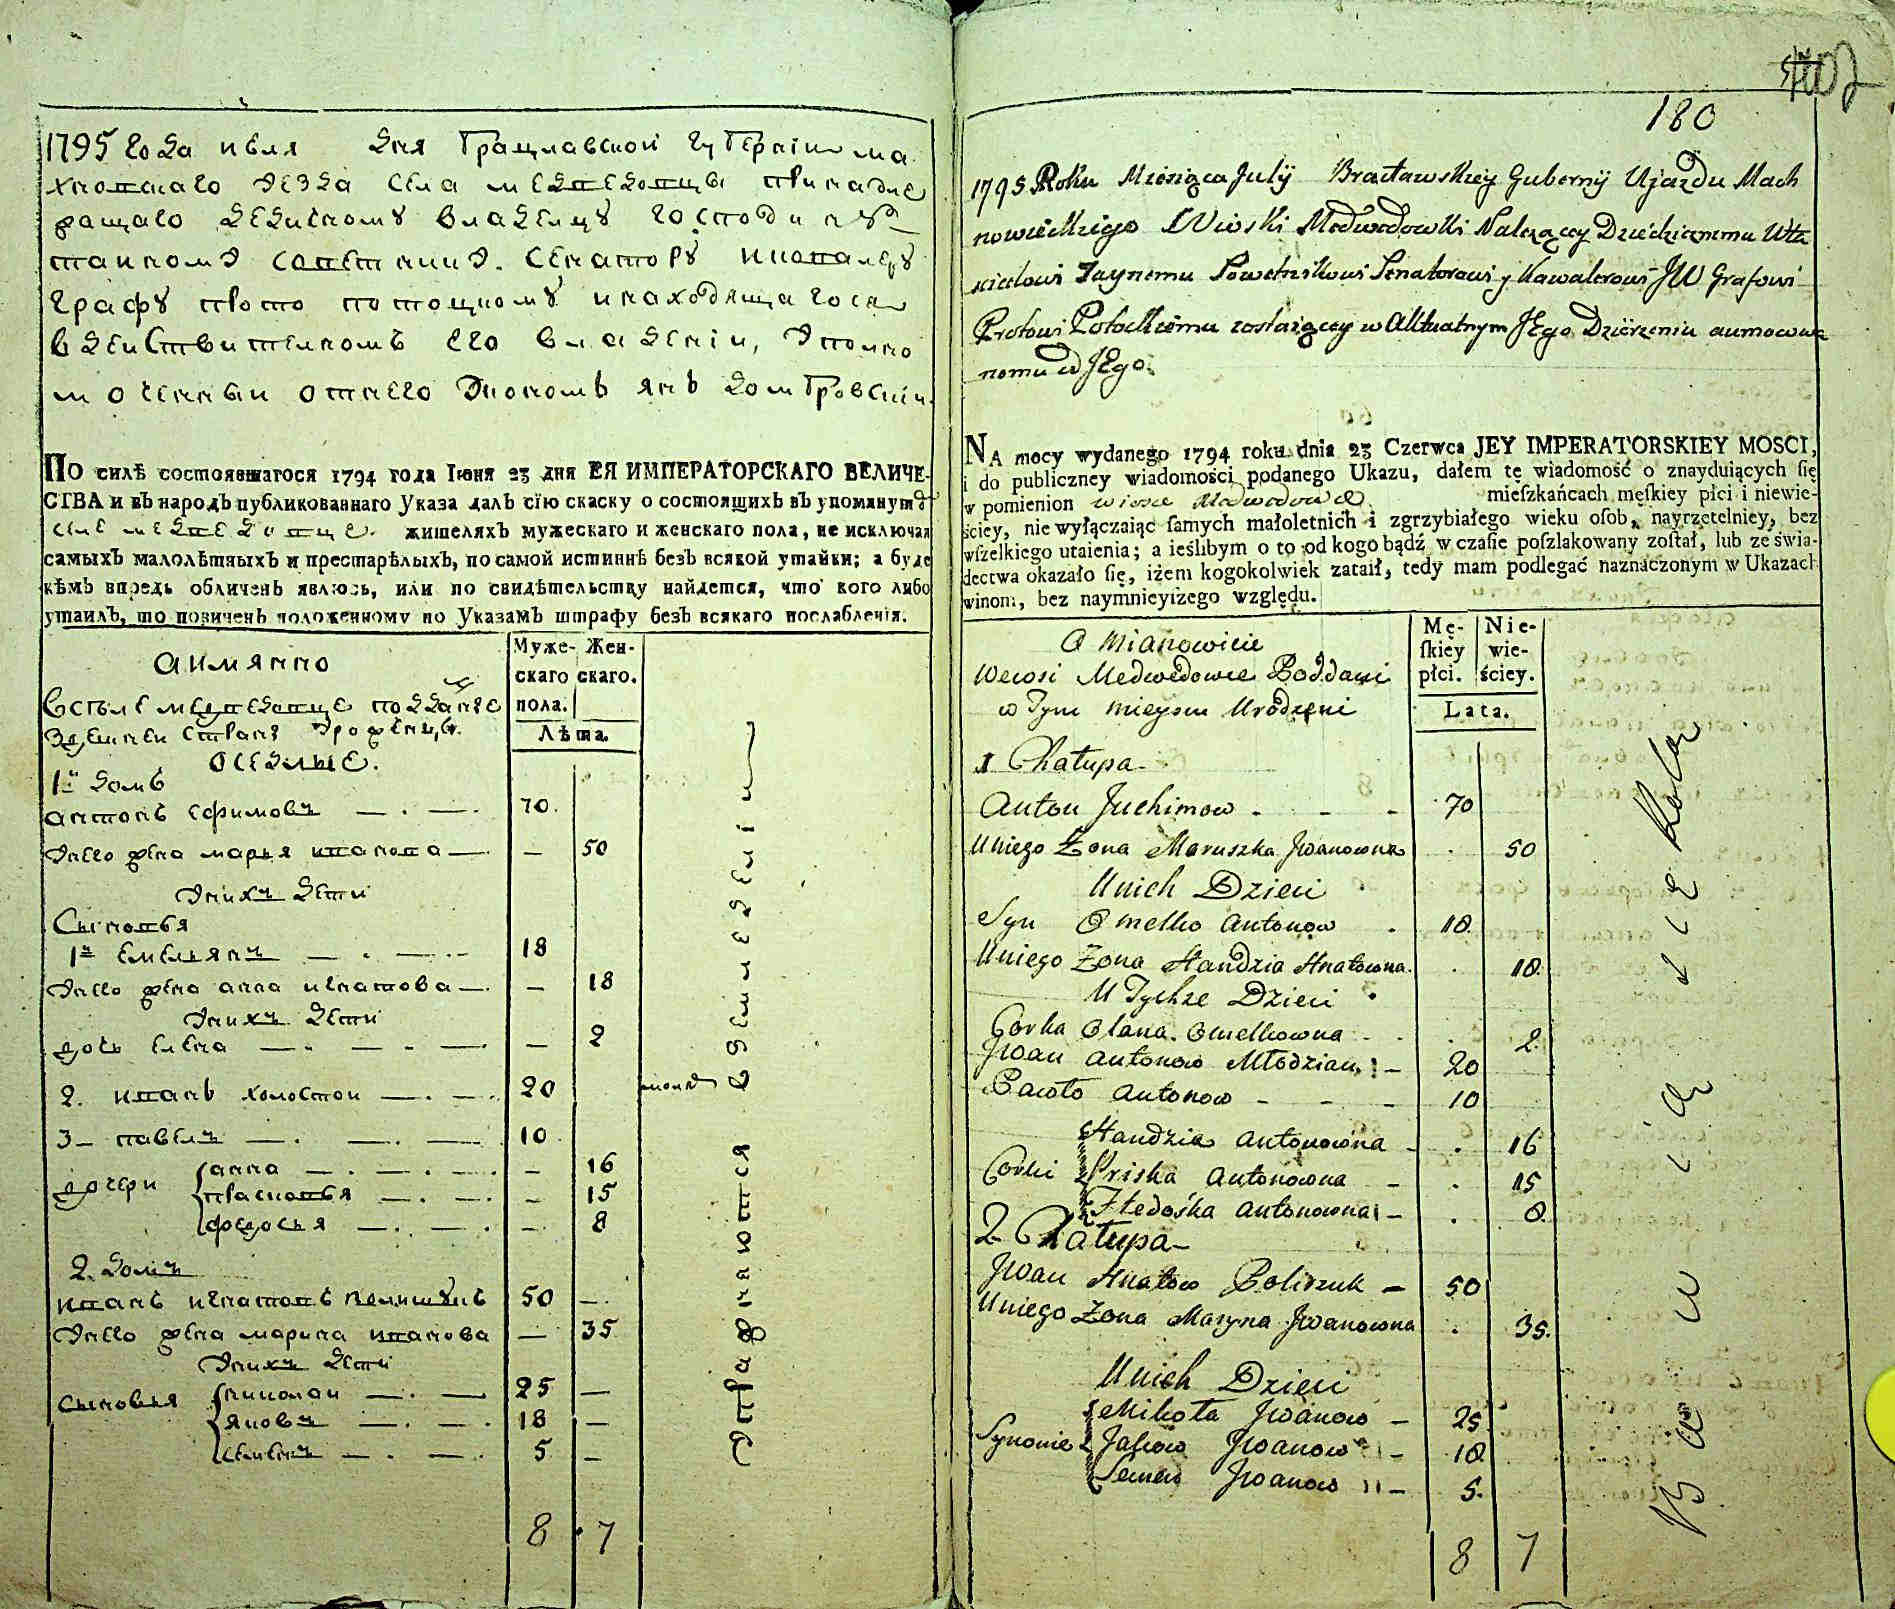 1795 года июля дня Брацлавской губернии ма
хновскаго уезда села медведовци принадле
жащаго дедичному владелцу господину
таиному советнику. сенатору икавалеру
графу прото потоцкому инаходящагося
в деиствителномъ его владении, уполно
моченныи отнего Экономъ янъ домбровскии.
ПО силѣ состоявшагося 1794 года Іюня 23 дня ЕЯ ИМПЕРАТОРСКАГО ВЕЛИЧЕ-
СТВА и въ народъ публикованнаго Указа далъ сїю скаску о состоящихъ въ упомянутѡ
селе медведовце. жителяхъ мужескаго и женскаго пола, не исключая
самыхъ малолѣтныхъ и престарѣлыхъ, по самой истиннѣ безъ всякой утайки; а буде
кѣмъ впредь обличенъ явлюсь, или по свидѣтельству найдется, что кого либо
утаилъ, то повиченъ положенному по Указамъ штрафу безъ всякаго послабленїя.
аимянно
Муже-скаго пола. Жен-скаго.
Лѣта.
Встьле медведовце подданые
здешнеи страны урожѣнцы.
оседлые.
1й домъ
антонъ ефимовъ 70.
Унего жена марья иванова — 50
Унихъ дети
Сыновья
1й емельянъ 18
Унего жена анна игнатова — 18
Унихъ дети
дочь елена — 2
2. иванъ холостои 20
3 — павелъ 10
дочери анна — 16
прасковья — 15
федосья — 8
2. домъ
иванъ игнатовъ полищукъ 50 —
Унего жена марина иванова — 35
Унихъ дети
сыновья николаи 25 —
яковъ 18 —
семенъ 5 —
8 7
Упражняются
вземледелии
180
1795 Roku Miesiąca July Bractawskiey Gubernij Ujazdu Mach
nowieckiego Wioski Medwedowki Nalezącey Dziedzicznemu Wła
scicielowi Taynemu Sowetnikowi Senatorowi y Kawalerowi JW Grafowi
Protowi Potockiemu zostaiącey w Aktualnym JEgo Dzierzeniu aumocowa
nemu od JEgo.
NA mocy wydanego 1794 roku dnia 23 Czerwca JEY IMPERATORSKIEY MOSCI,
i do publiczney wiadomości podanego Ukazu, dałem tę wiadomość o znayduiących ſię
w pomienion wiosce Medwedowce mieſzkańcach męſkiey płci i niewie-
ściey, nie wyłączaiąc ſamych małoletnich i zgrzybiałego wieku oſob, nayrzetelniey, bez
wſzelkiego utaienia; a ieślibym o to od kogo bądź w czaſie poſzlakowany zoſtał, lub ze świa-
dectwa okazało ſię, iżem kogokolwiek zataił, tedy mam podlegać naznaczonym w Ukazach
winom, bez naymnieyſzego względu.
A mianowicie
Mę-ſkiey płci. Nie-wie-ściey.
Lata.
Wewsi Medwedowce Poddani
w Tym mieyscu Urodzeni
1 Chałupa
Anton Juchimow - - - 70
Uniego Zona Maruszka Jwanowna . 50
Unich Dzieci
Syn Omelko Antonow . 18
Uniego Zona Handzia Hnatowna . 18
U Tychze Dzieci
Corka Olana Omelkowna . 2.
Jwan Antonow Młodzian — 20
Pawło Antonow - - - 10
Corki Handzia Antonowna - . 16
Priska Antonowna - . 15
Ftedośka Antonowna — . 8
2 Chałupa —
Jwan Hnatow Poliszuk — 50
Uniego Zona Maryna Jwanowna . 35.
Unich Dzieci
Synowie Mikoła Jwanow — 25
Jakow Jwanow — 18
Semen Jwanow — 5.
8 7